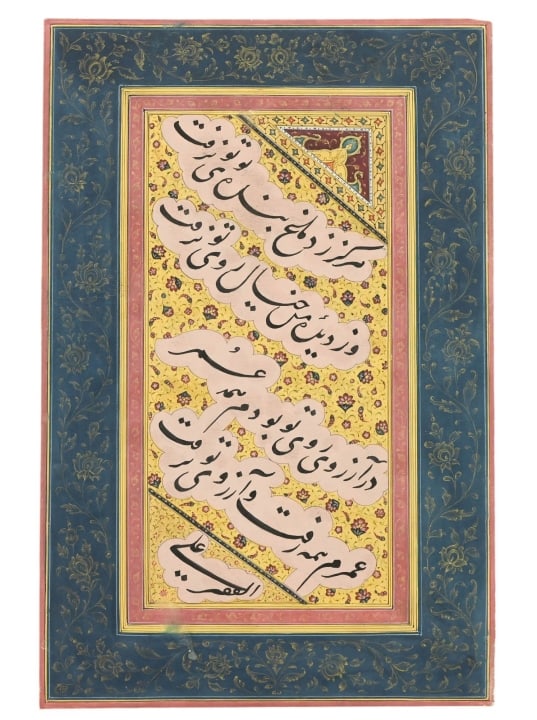 هرگز ز دماغ بنده بوی تو نرفت
وز دیدهٔ من خیال روی تو نرفت
در آرزوی روی تو بودم همه عمر
عمرم همه رفت و آرزوی تو نرفت
الفقیر علی